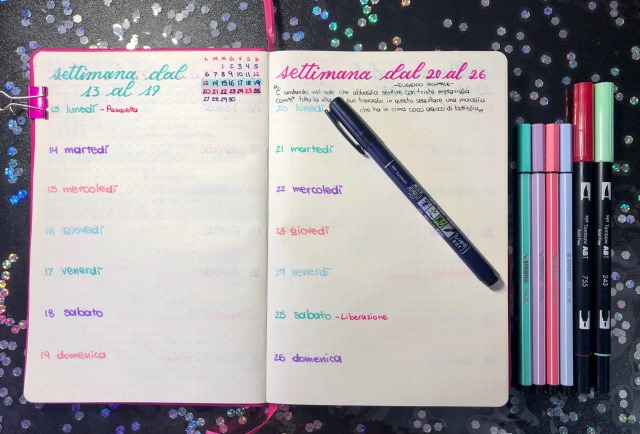 settimana dal
13 al 19
L M M G V S D
1 2 3 4 5
6 7 8 9 10 11 12
13 14 15 16 17 18 19
20 21 22 23 24 25 26
27 28 29 30
13 lunedì - Pasquetta
14 martedì
15 mercoledì
16 giovedì
17 venerdì
18 sabato
19 domenica
settimana dal 20 al 26
- EUGENIO MONTALE
"E andando nel sole che abbaglia sentire con triste meraviglia
com'è tutta la vita suo travaglio in questo seguitare una muraglia
che ha in cima cocci aguzzi di bottiglia"
20 lunedì
21 martedì
22 mercoledì
23 giovedì
24 venerdì
25 sabato - Liberazione
26 domenica
Tombow ABT
755
Tombow ABT
243